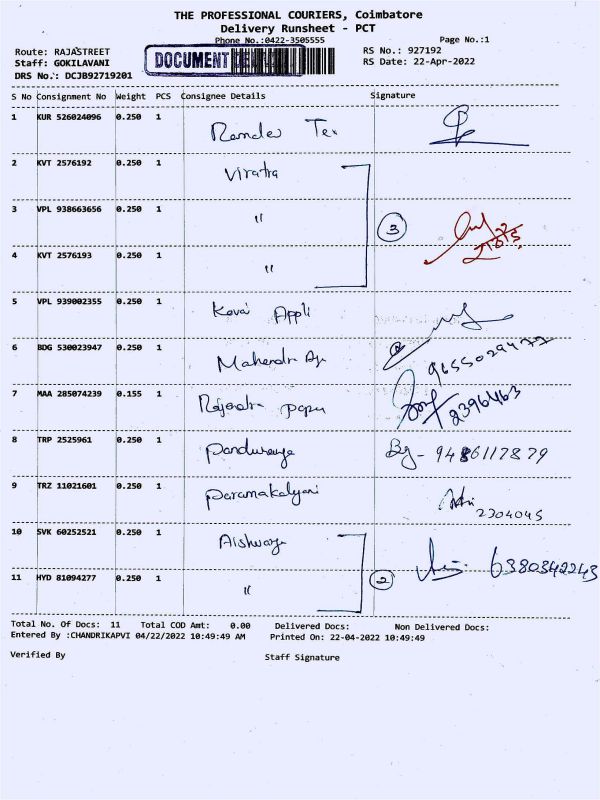 THE PROFESSIONAL COURIERS, Coimbatore
Delivery Runsheet - PCT
Phone No.:0422-3505555 Page No.:1
Route: RAJASTREET RS No.: 927192
Staff: GOKILAVANI DOCUMENT RS Date: 22-Apr-2022
DRS No.: DCJB92719201
S No Consignment No Weight PCS Consignee Details Signature
1 KUR 526024096 0.250 1 Ramdev Tex
2 KVT 2576192 0.250 1 Viratra
3 VPL 938663656 0.250 1 " 3
4 KVT 2576193 0.250 1 "
5 VPL 939002355 0.250 1 Kovai Appli
6 BDG 530023947 0.250 1 Mahendra 9655029477
7 MAA 285074239 0.155 1 Rajendra papu 2396463
8 TRP 2525961 0.250 1 Panduranga 9486117879
9 TRZ 11021601 0.250 1 Paramakalyani 2304045
10 SVK 60252521 0.250 1 Aishwarya 6380342243
11 HYD 81094277 0.250 1 " 2
Total No. Of Docs: 11 Total COD Amt: 0.00 Delivered Docs: Non Delivered Docs:
Entered By :CHANDRIKAPVI 04/22/2022 10:49:49 AM Printed On: 22-04-2022 10:49:49
Verified By Staff Signature